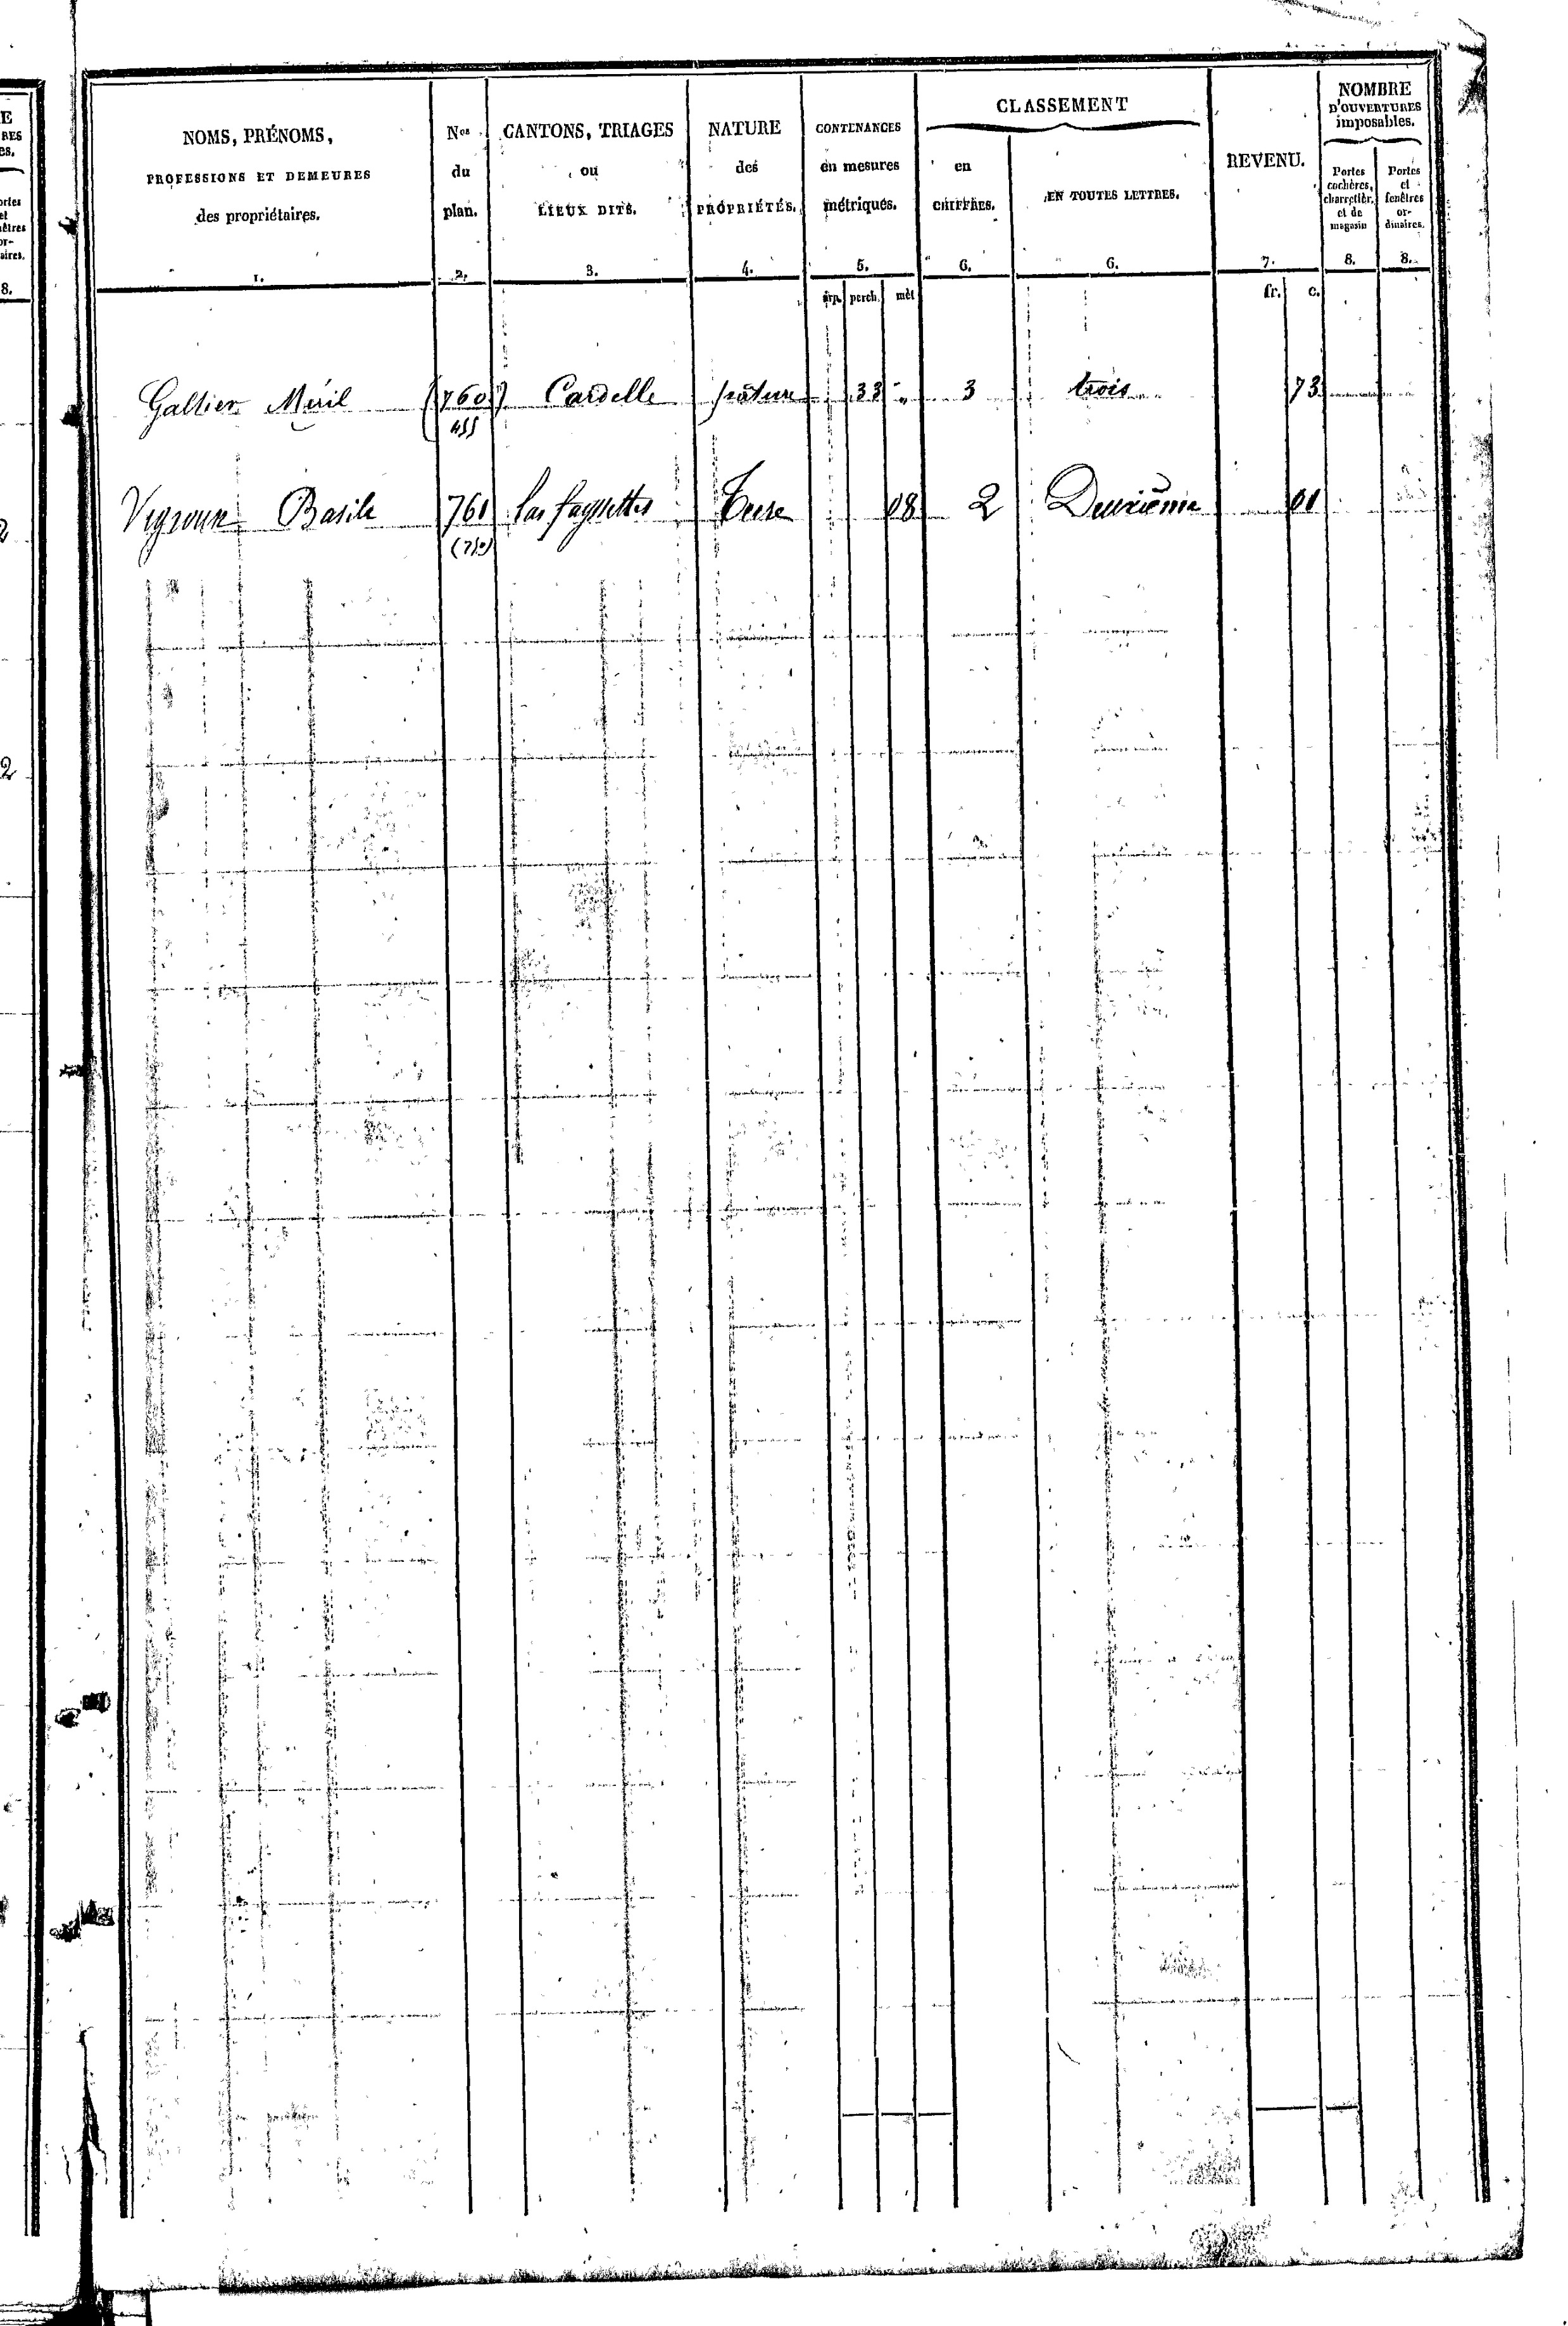 E
RES
es.
ortes
et
nêtres
or-
aires.
8.
2
2
NOMS, PRÉNOMS,
PROFESSIONS ET DEMEURES
des propriétaires.
1.
Nos
du
plan.
2.
CANTONS, TRIAGES
ou
LIEUX DITS.
3.
NATURE
des
PROPRIÉTÉS.
4.
CONTENANCES
en mesures
métriques.
5.
arp. perch. mèt
CLASSEMENT
en
CHIFFRES.
6.
EN TOUTES LETTRES.
6.
REVENU.
7.
fr. c.
NOMBRE
D'OUVERTURES
imposables.
Portes
cochères,
charretièr.
et de
magasin
8.
Portes
et
fenêtres
or-
dinaires.
8.
Galtier (760) Cardelle pâture 33 " 3 trois 73
455
Basile 761 las fayssettes Terre 08 2 Deuxième 01
(750)